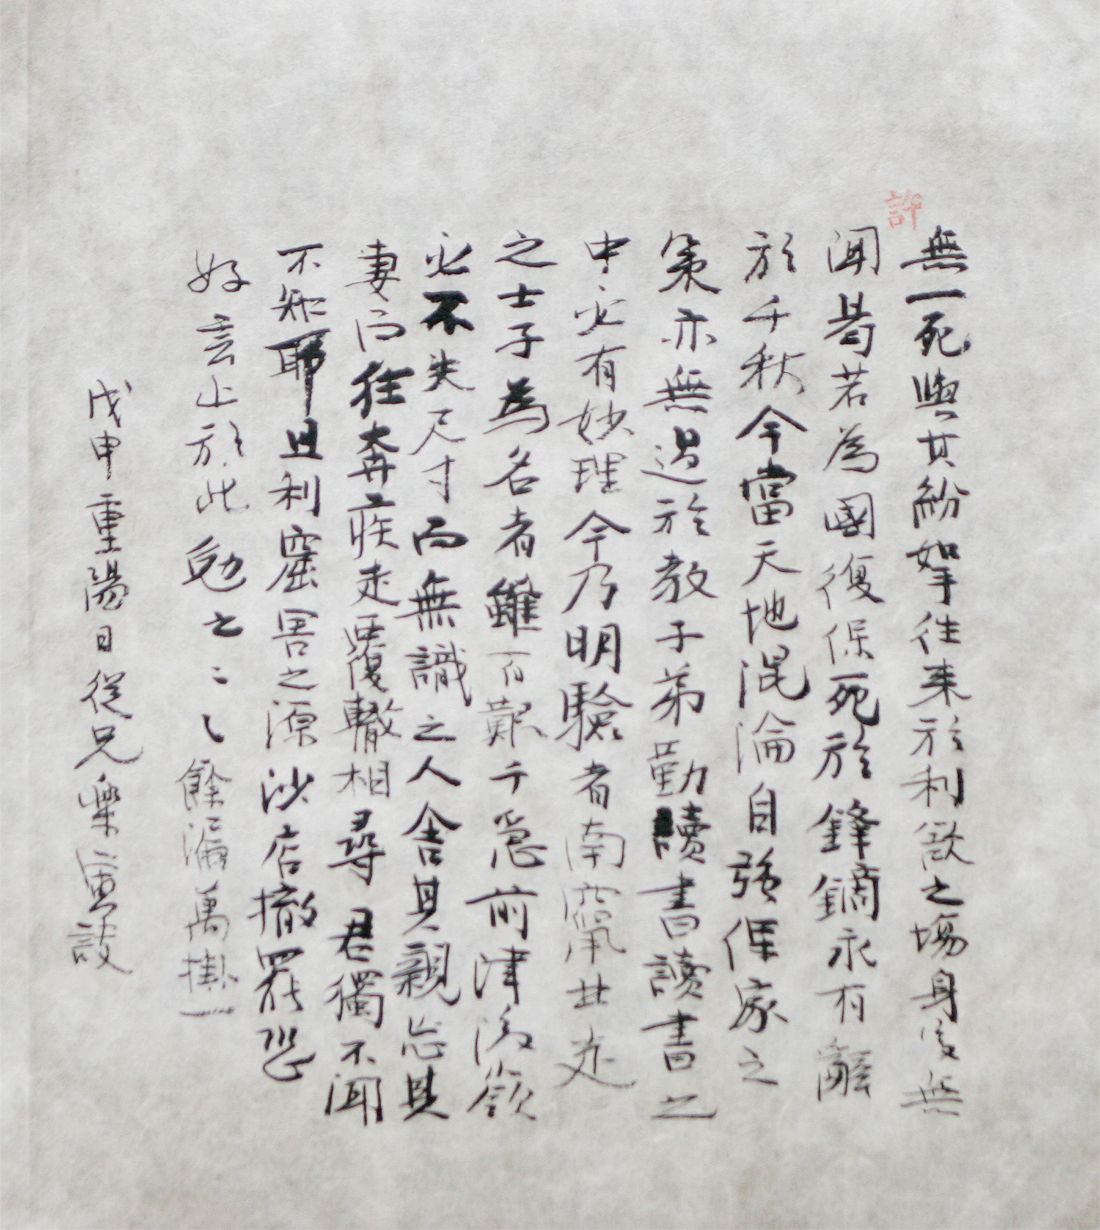 許
無一死與其紛拏往來於利欲之場身後無
聞曷若為國復保死於鋒鏑永有辭
於千秋今當天地混淪自強保家之
策亦無過於教子弟勤讀書讀書之
中必有妙理今乃明驗者南竄北走
之士子為名者雖百艱千急前津後
必不失尺寸而無識之人舍其親忘其
妻而往奔疾走覆轍相尋君獨不聞
不知耶且利窟害之源沙店撤罷恐
好言止於此勉之餘漏萬掛一
戊申重陽日從兄樂